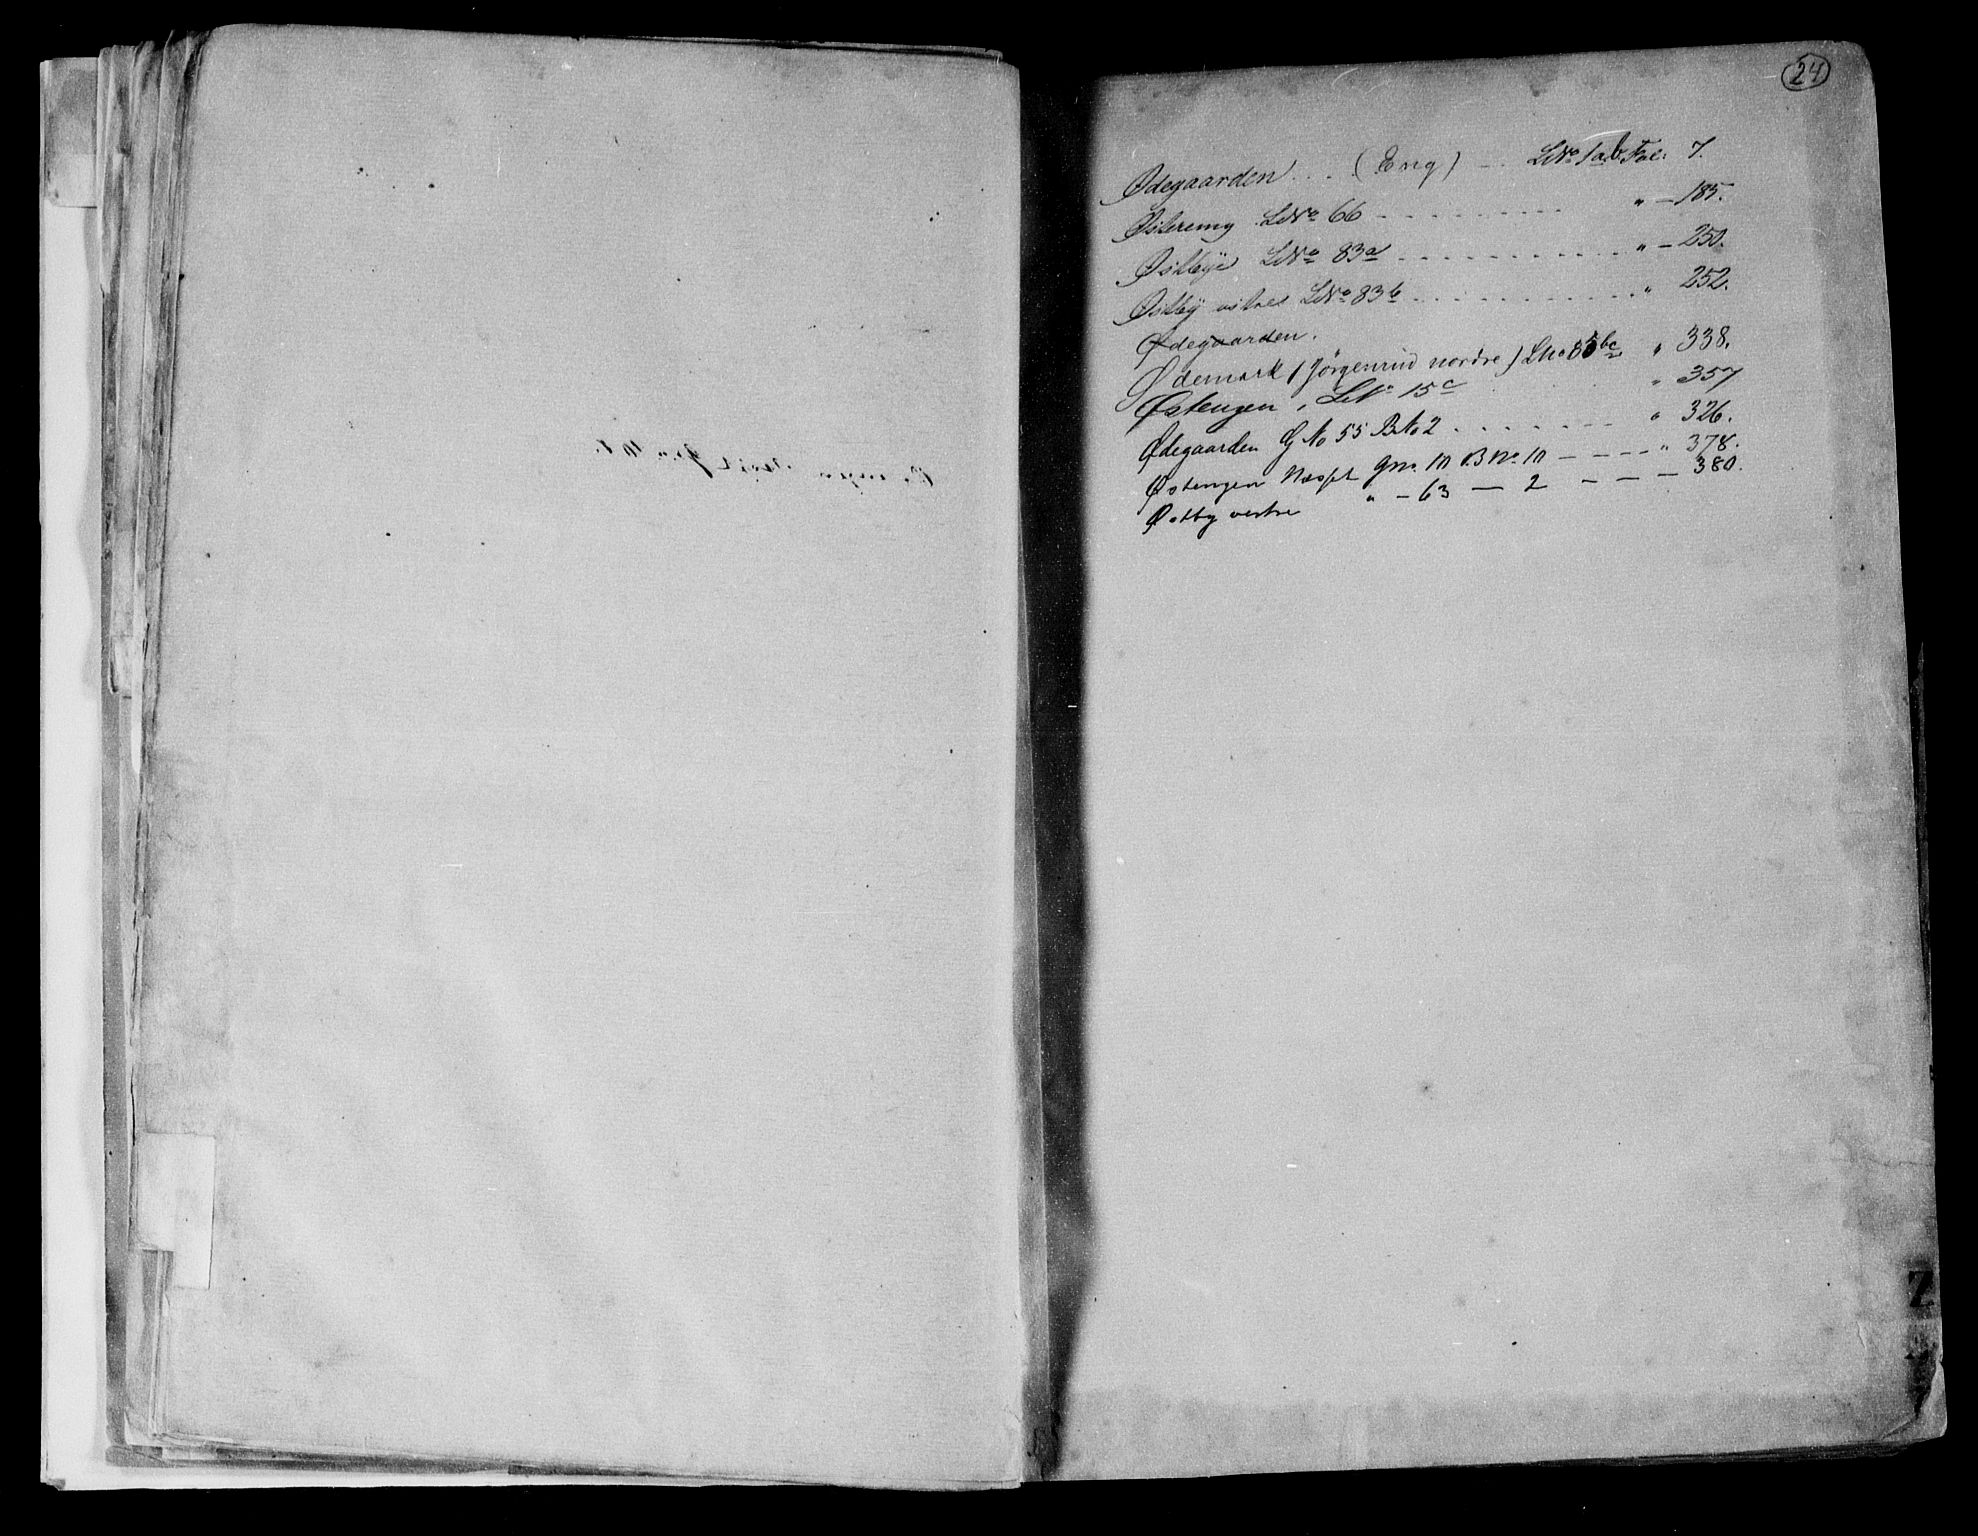 24
Ødegaarden . . . . (Eng) — . LNo 1ab Fol. 7.
Østereng LNo 66 - - - - - - - - - " — 185.
Østbye LNo 83a - - - - - - - - - " — 250.
Østby vestre LNo 83b . . . . . . . . . " 252.
Ødegaarden.
Ødemark (Jørgenrud nordre) LNo 85bc " 338.
Østengen, LNo 15c " 357
Ødegaarden GNo 55 BNo 2 . . . . . . . " 326.
Østengen Næspt Gno. 10 BNo. 10 — — — — " 378.
Østby vestre " — 63 — 2 — — — 380.
Z